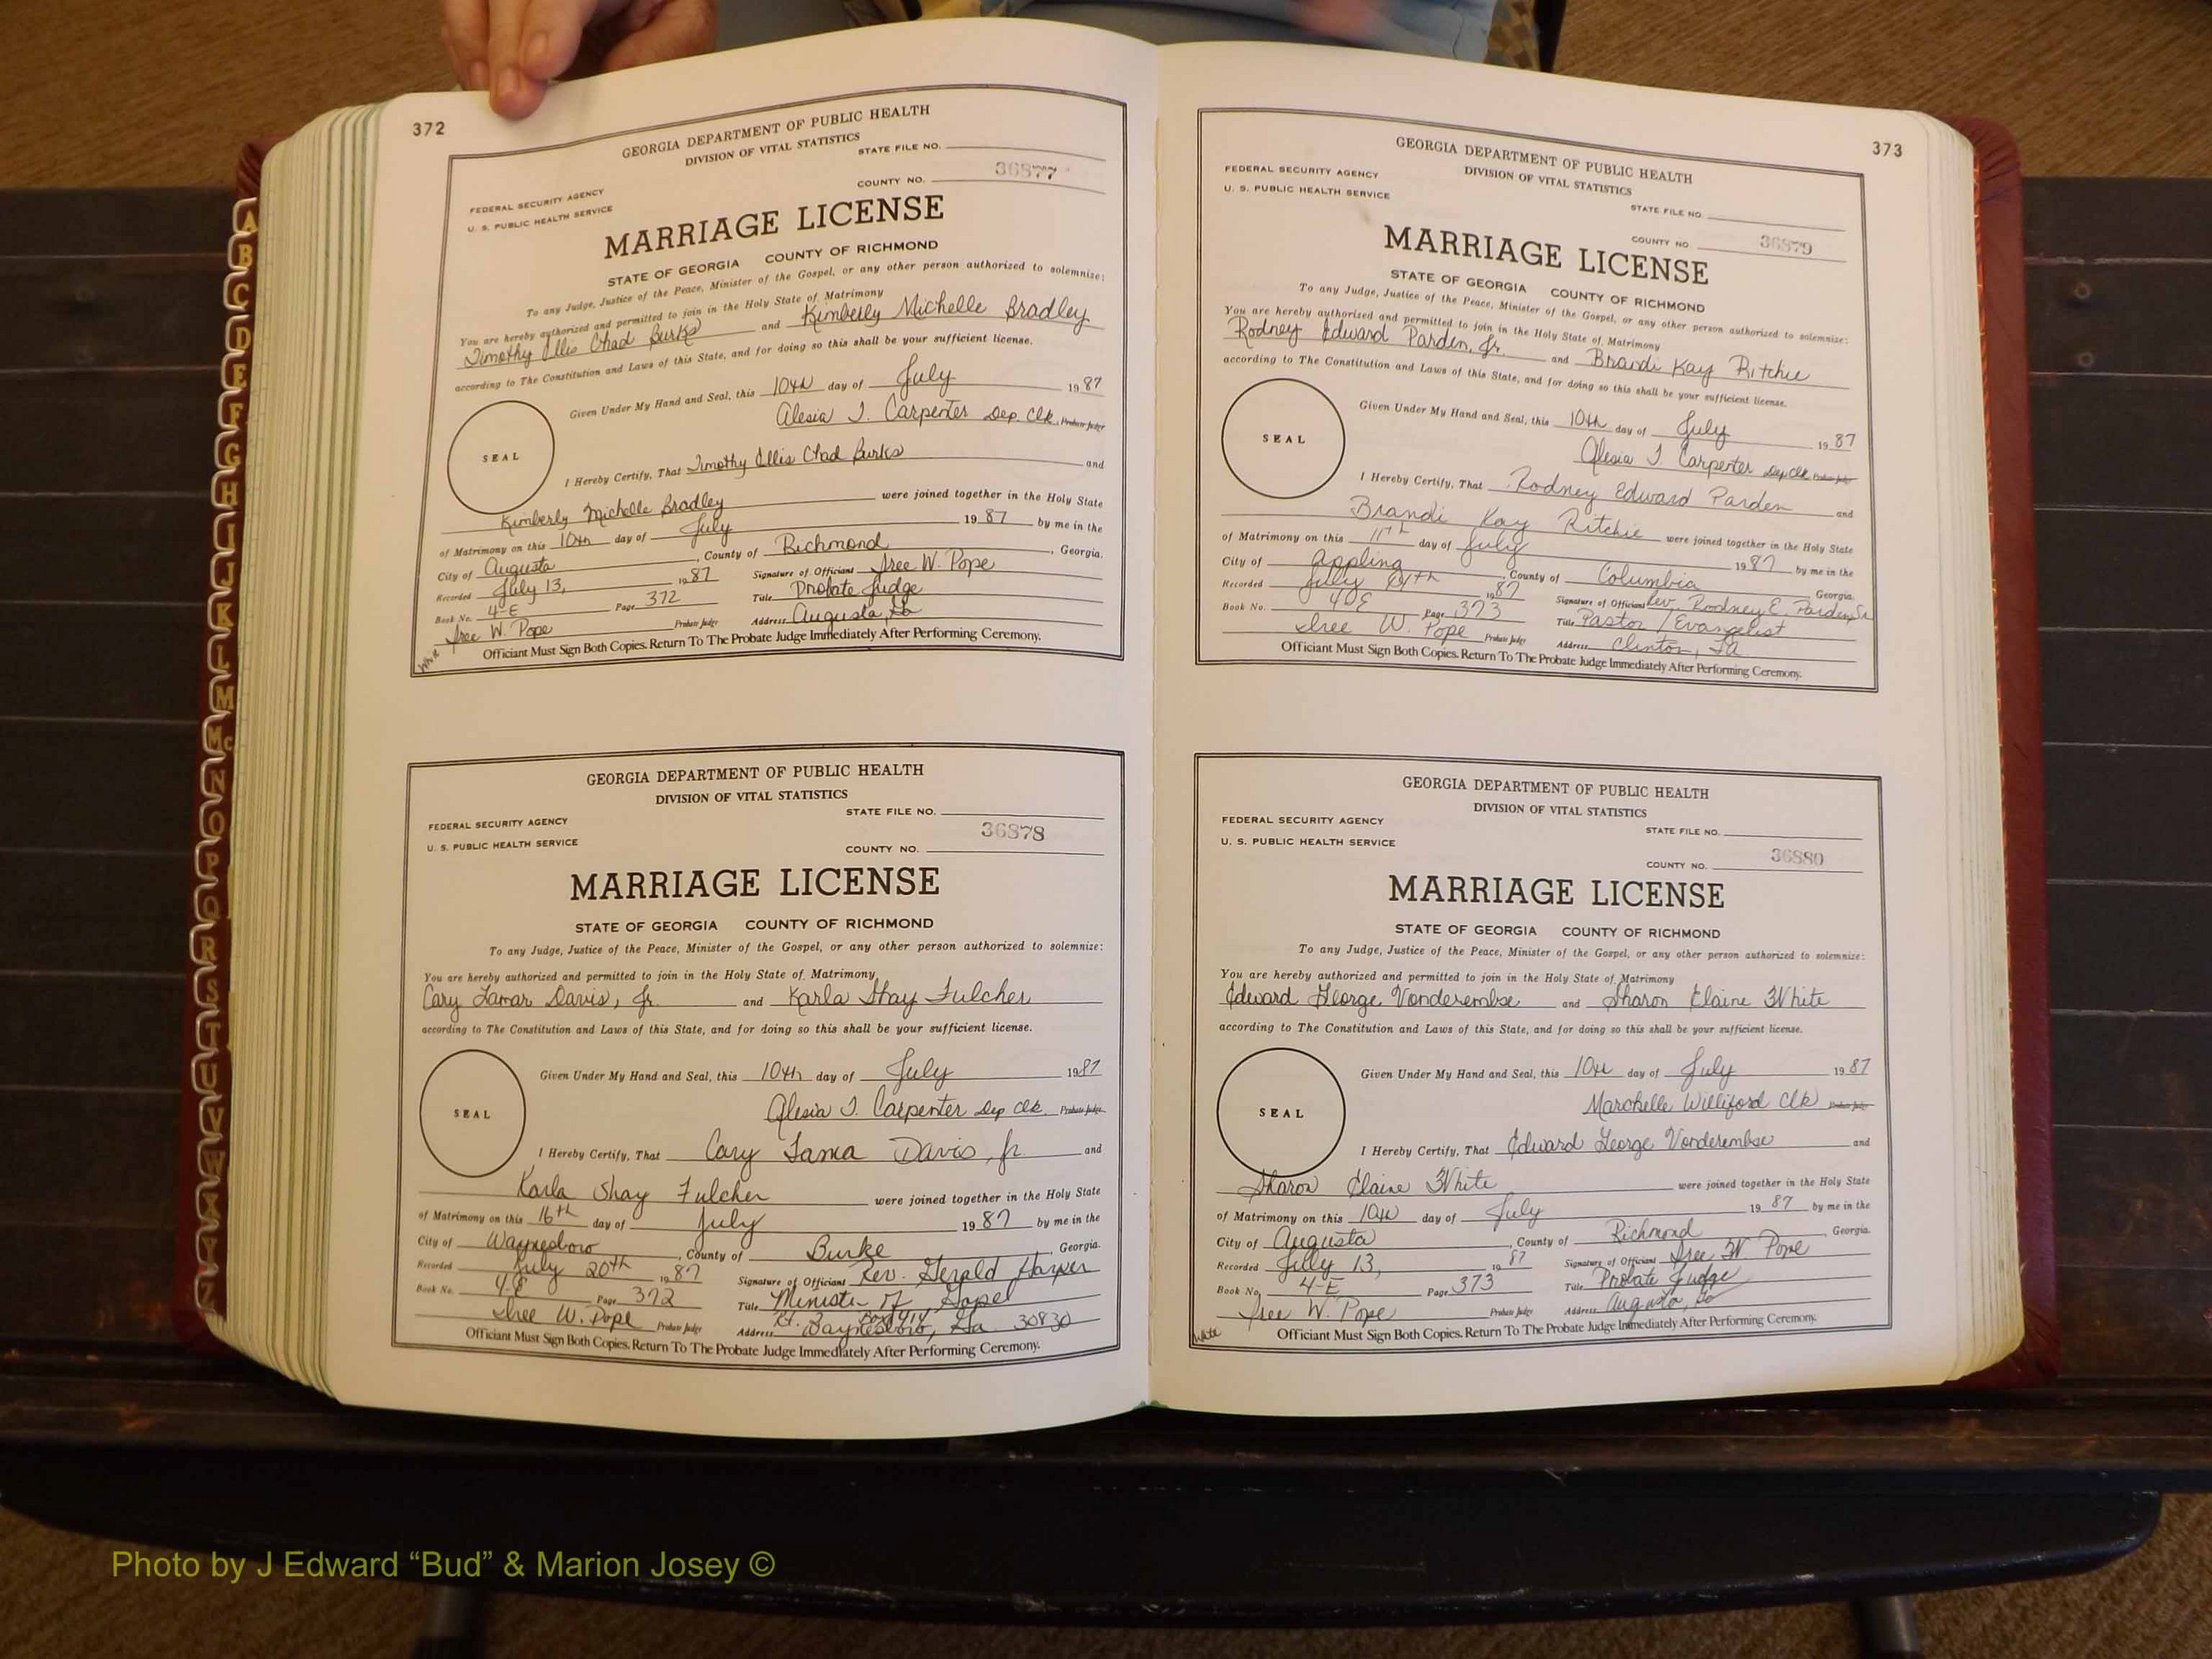 372
GEORGIA DEPARTMENT OF PUBLIC HEALTH
DIVISION OF VITAL STATISTICS
STATE FILE NO.
36877
COUNTY NO.
FEDERAL SECURITY AGENCY
U. S. PUBLIC HEALTH SERVICE
MARRIAGE LICENSE
STATE OF GEORGIA COUNTY OF RICHMOND
To any Judge, Justice of the Peace, Minister of the Gospel, or any other person authorized to solemnize:
You are hereby authorized and permitted to join in the Holy State of Matrimony
Timothy Ellis Chad Burks and Kimberly Michelle Bradley
according to The Constitution and Laws of this State, and for doing so this shall be your sufficient license.
Given Under My Hand and Seal, this 10th day of July 1987
Alesia J. Carpenter Dep. Clk. Probate Judge
SEAL
I Hereby Certify, That Timothy Ellis Chad Burks and
Kimberly Michelle Bradley were joined together in the Holy State
of Matrimony on this 10th day of July 1987 by me in the
City of Augusta, County of Richmond, Georgia.
Recorded July 13, 1987 Signature of Officiant Iree W. Pope
Book No. 4-E Page 372 Title Probate Judge
Iree W. Pope Probate Judge Address Augusta, Ga
Officiant Must Sign Both Copies. Return To The Probate Judge Immediately After Performing Ceremony.
GEORGIA DEPARTMENT OF PUBLIC HEALTH
DIVISION OF VITAL STATISTICS
STATE FILE NO.
36878
FEDERAL SECURITY AGENCY
U. S. PUBLIC HEALTH SERVICE
COUNTY NO.
MARRIAGE LICENSE
STATE OF GEORGIA COUNTY OF RICHMOND
To any Judge, Justice of the Peace, Minister of the Gospel, or any other person authorized to solemnize:
You are hereby authorized and permitted to join in the Holy State of Matrimony
Cary Lamar Davis, Jr. and Karla Shay Fulcher
according to The Constitution and Laws of this State, and for doing so this shall be your sufficient license.
Given Under My Hand and Seal, this 10th day of July 1987
Alesia J. Carpenter Dep Clk. Probate Judge
SEAL
I Hereby Certify, That Cary Lama Davis, Jr. and
Karla Shay Fulcher were joined together in the Holy State
of Matrimony on this 16th day of July 1987 by me in the
City of Waynesboro, County of Burke, Georgia.
Recorded July 20th 1987 Signature of Officiant Rev. Gerald Harper
Book No. 4-E Page 372 Title Minister of Gospel
Iree W. Pope Probate Judge Address Rt. Waynesboro, Ga. 30830
Officiant Must Sign Both Copies. Return To The Probate Judge Immediately After Performing Ceremony.
373
GEORGIA DEPARTMENT OF PUBLIC HEALTH
DIVISION OF VITAL STATISTICS
FEDERAL SECURITY AGENCY
U. S. PUBLIC HEALTH SERVICE
STATE FILE NO.
COUNTY NO. 36879
MARRIAGE LICENSE
STATE OF GEORGIA COUNTY OF RICHMOND
To any Judge, Justice of the Peace, Minister of the Gospel, or any other person authorized to solemnize:
You are hereby authorized and permitted to join in the Holy State of Matrimony
Rodney Edward Parden, Jr. and Brandi Kay Ritchie
according to The Constitution and Laws of this State, and for doing so this shall be your sufficient license.
Given Under My Hand and Seal, this 10th day of July 1987
Alesia J Carpenter Dep. Clk Probate Judge
SEAL
I Hereby Certify, That Rodney Edward Parden and
Brandi Kay Ritchie were joined together in the Holy State
of Matrimony on this 11th day of July 1987 by me in the
City of Appling, County of Columbia Georgia.
Recorded July 1987 Signature of Officiant Rev. Rodney E. Parden Sr
Book No. 4-E Page 373 Title Pastor / Evangelist
Iree W. Pope Probate Judge Address Clinton,
Officiant Must Sign Both Copies. Return To The Probate Judge Immediately After Performing Ceremony.
GEORGIA DEPARTMENT OF PUBLIC HEALTH
DIVISION OF VITAL STATISTICS
FEDERAL SECURITY AGENCY
U. S. PUBLIC HEALTH SERVICE
STATE FILE NO.
COUNTY NO. 36880
MARRIAGE LICENSE
STATE OF GEORGIA COUNTY OF RICHMOND
To any Judge, Justice of the Peace, Minister of the Gospel, or any other person authorized to solemnize:
You are hereby authorized and permitted to join in the Holy State of Matrimony
Edward George Vonderembse and Sharon Elaine White
according to The Constitution and Laws of this State, and for doing so this shall be your sufficient license.
Given Under My Hand and Seal, this 10th day of July 1987
Marchelle Williford Clk Probate Judge
SEAL
I Hereby Certify, That Edward George Vonderembse and
Sharon Elaine White were joined together in the Holy State
of Matrimony on this 10th day of July 1987 by me in the
City of Augusta, County of Richmond, Georgia.
Recorded July 13, 1987 Signature of Officiant Iree W Pope
Book No. 4-E Page 373 Title Probate Judge
Iree W. Pope Probate Judge Address Augusta, Ga
White
Officiant Must Sign Both Copies. Return To The Probate Judge Immediately After Performing Ceremony.
A
B
C
D
E
F
G
H
I
J
K
L
M
Mc
N
O
P
Q
R
S
T
U
V
W
X
Y
Z
Photo by J Edward “Bud” & Marion Josey ©